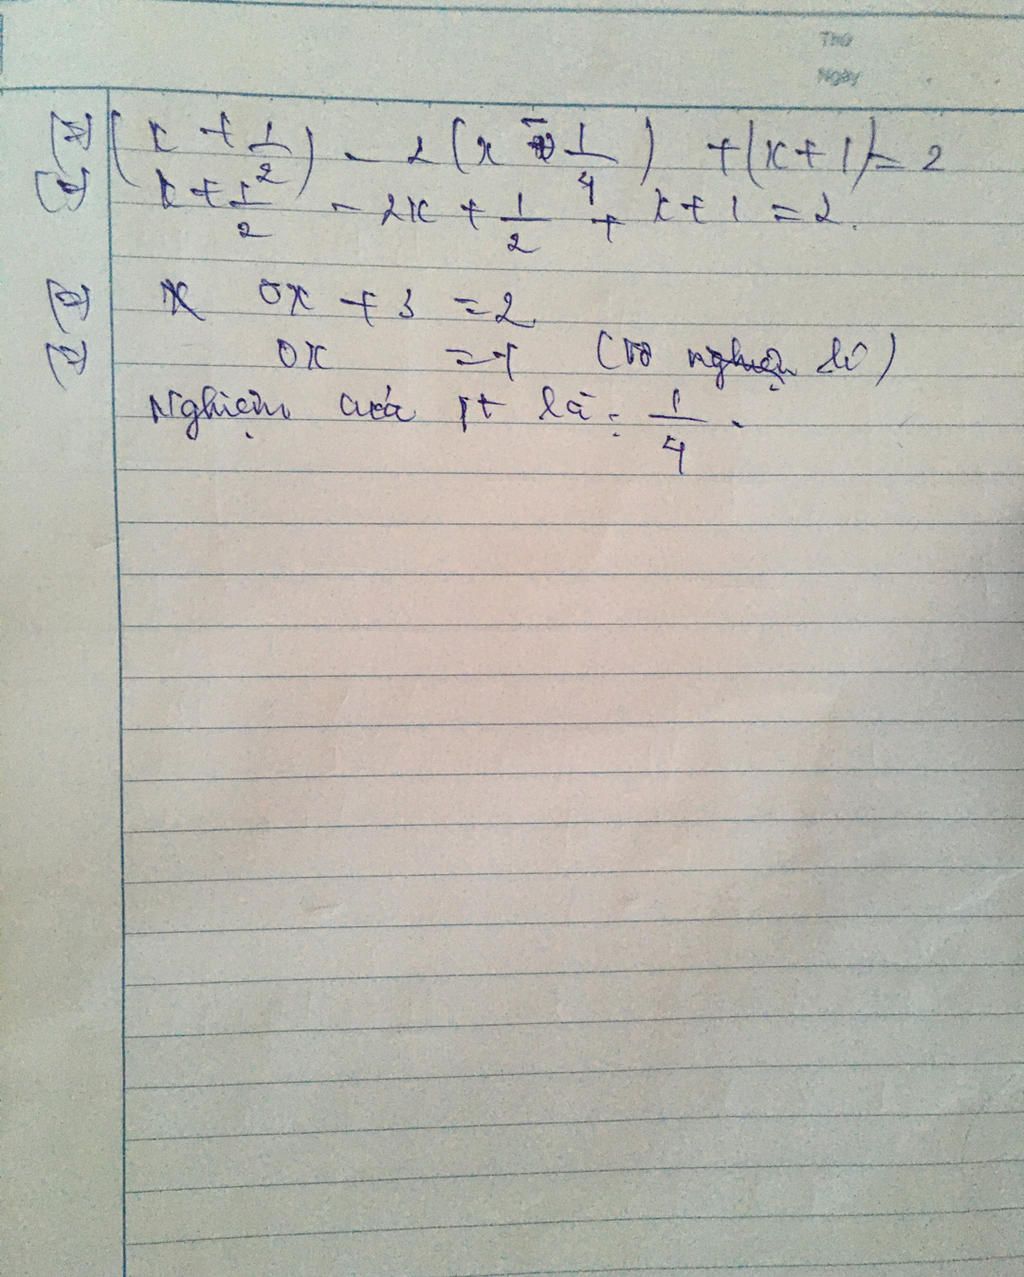 Thứ
Ngày
(x + 1/2) - 2(x - 1/4) + (x + 1) = 2
x + 1/2 - 2x + 1/2 + x + 1 = 2.
0x + 3 = 2
0x = -1 (vô nghiệm
Nghiệm của pt là: 1/4.